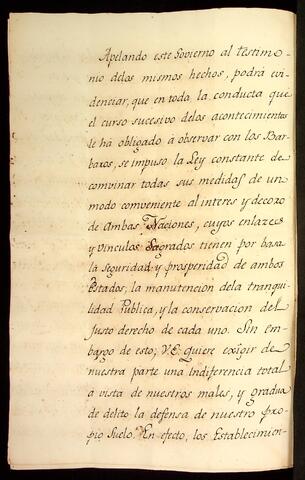 Apelando este Govierno al testimo-
nio delos mismos hechos, podrá evi-
denciar, que en toda la conducta que
el curso sucesivo delos acontecimientos
le há obligado à observar con los Bar-
baros, se impuso la Ley constante de
convinar todas sus medidas de un
modo conveniente al interes y decoro
de Ambas Naciones, cuyos enlazes
y vinculos Sagrados tienen por basa
la seguridad y prosperidad de ambos
Estados, la manutencion dela tranqui-
lidad Publica, y la conservacion del
Justo derecho de cada uno. Sin em-
bargo de esto; V.E. quiere exîgir de
nuestra parte una indiferencia total
a vista de nuestros males, y gradua
de delito la defensa de nuestro pro-
pio Suelo. En efecto, los Establecimien-